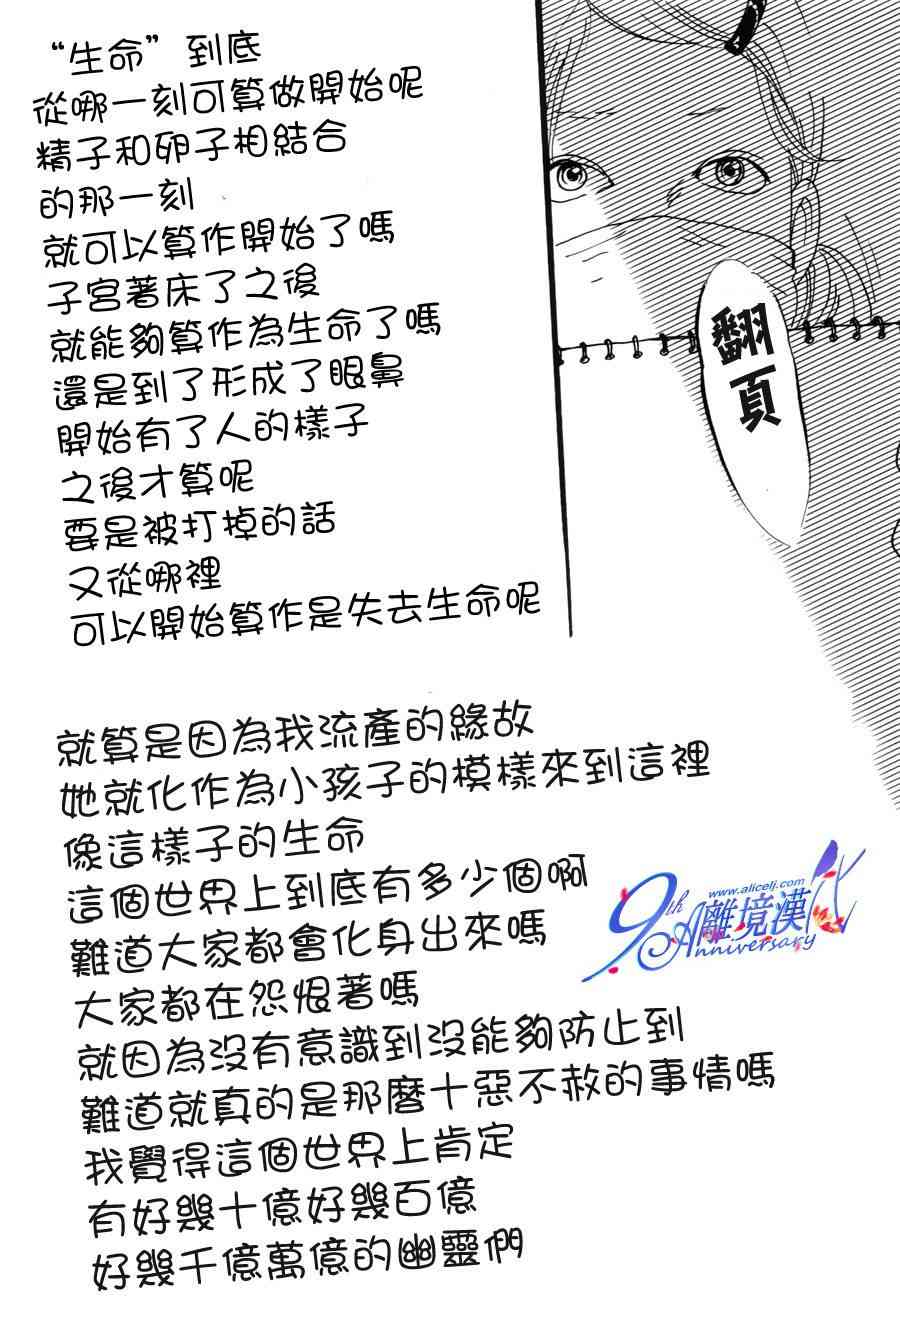 “生命”到底
從哪一刻可算做開始呢
精子和卵子相結合
的那一刻
就可以算作開始了嗎
子宮著床了之後
就能夠算作為生命了嗎
還是到了形成了眼鼻
開始有了人的樣子
之後才算呢
要是被打掉的話
又從哪裡
可以開始算作是失去生命呢
翻頁
就算是因為我流產的緣故
她就化作為小孩子的模樣來到這裡
像這樣子的生命
這個世界上到底有多少個啊
難道大家都會化身出來嗎
大家都在怨恨著嗎
就因為沒有意識到沒能夠防止到
難道就真的是那麼十惡不赦的事情嗎
我覺得這個世界上肯定
有好幾十億好幾百億
好幾千億萬億的幽靈們
9th
www.alicelj.com
離境漢化
Anniversary